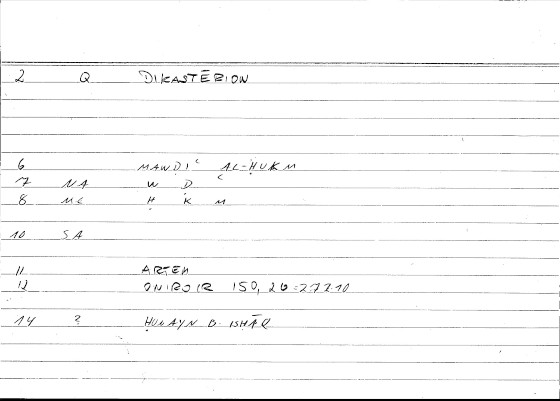 2 Q DIKASTĒRION
6 MAWḌIʿ AL-ḤUKM
7 NA W Ḍ ʿ
8 MC Ḥ K M
10 SA
11 ARTEM
12 ONIROCR 150, 26 = 277.10
14 2 ḤUNAYN B. ISḤĀQ